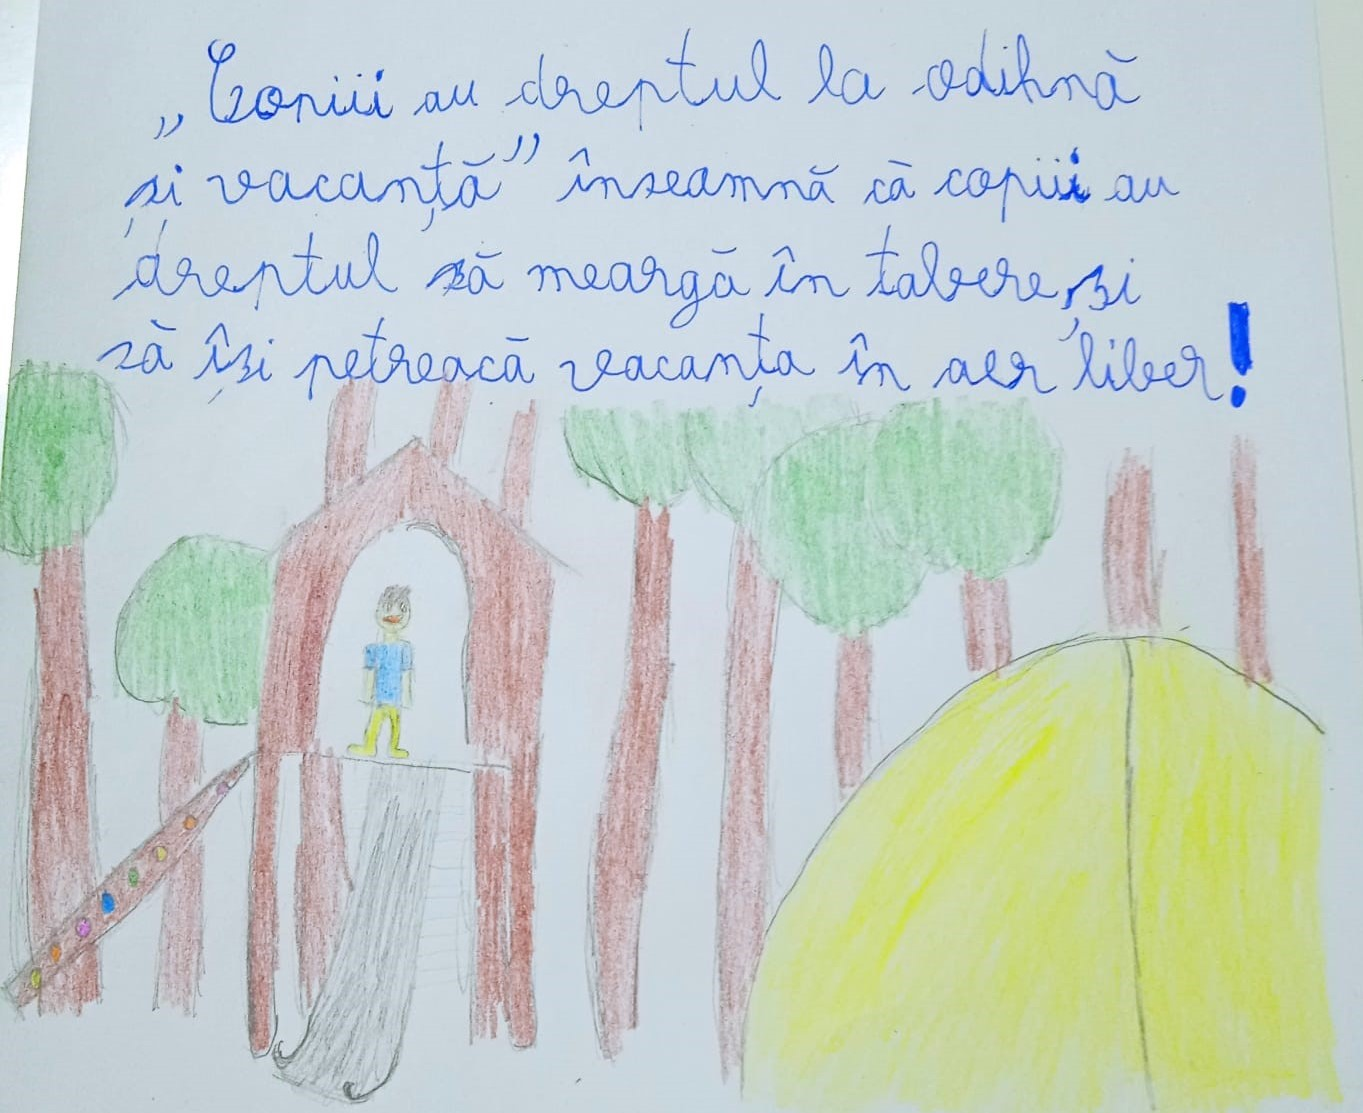 „Copiii au dreptul la odihnă
și vacanță” înseamnă că copiii au
dreptul să meargă în tabere, și
să își petreacă vacanța în aer liber!